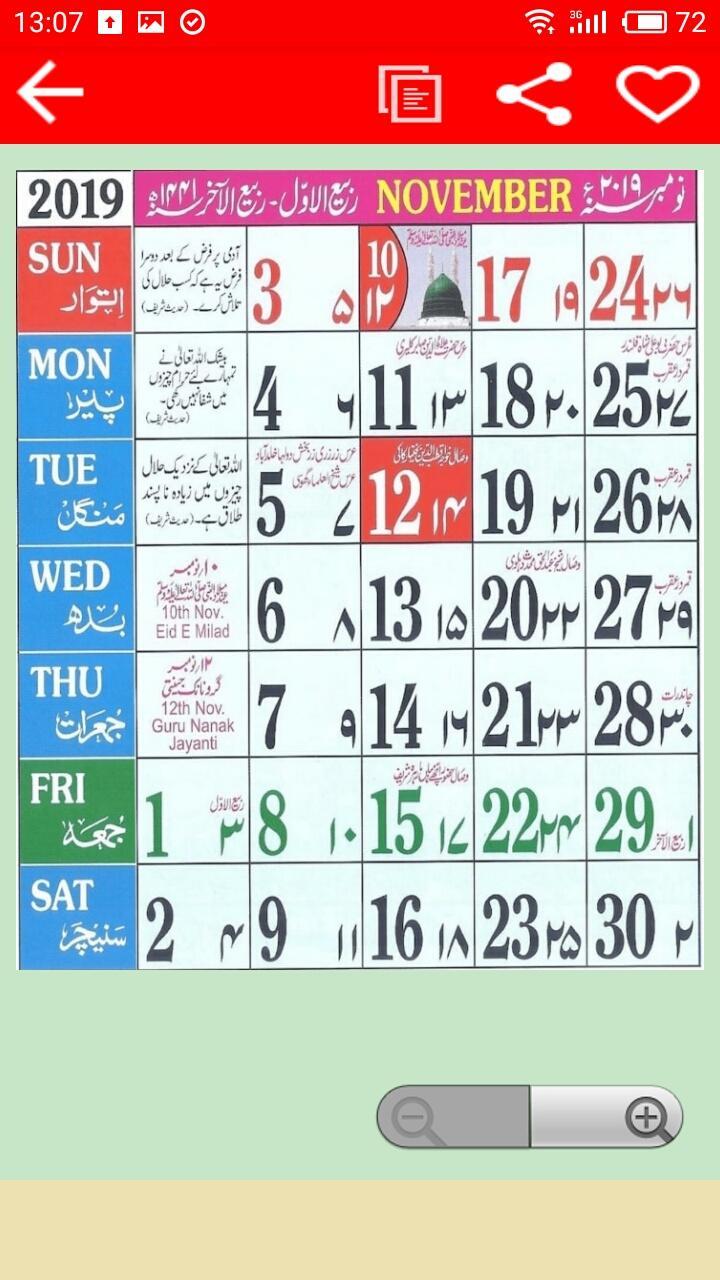 13:07
3G
72
2019
ربیع الاوّل - ربیع الآخر سنہ ۱۴۴۱ھ
NOVEMBER
نومبر سنہ ۲۰۱۹ء
SUN
اِتوَار
آدمی پر فرض کے بعد دوسرا
فرض یہ ہے کہ کسب حلال کی
تلاش کرے۔ (حدیث شریف)
3 ۵
10 ۱۲
17 ۱۹
24 ۲۶
MON
پیر
بیشک اللہ تعالیٰ نے
تمہارے لئے حرام چیزوں
میں شفا نہیں رکھی۔
(حدیث شریف)
4 ۶
11 ۱۳
18 ۲۰
قمر در عقرب
25 ۲۷
TUE
مَنگل
اللہ تعالیٰ کے نزدیک حلال
چیزوں میں زیادہ نا پسند
طلاق ہے۔ (حدیث شریف)
5 ۷
12 ۱۴
19 ۲۱
قمر در عقرب
26 ۲۸
WED
بُدھ
۱۰ نومبر
10th Nov.
Eid E Milad
6 ۸
13 ۱۵
20 ۲۲
قمر در عقرب
27 ۲۹
THU
جمعرات
۱۲ نومبر
گرونانک جینتی
12th Nov.
Guru Nanak
Jayanti
7 ۹
14 ۱۶
21 ۲۳
چاند رات
28 ۳۰
FRI
جُمعہ
ربیع الاوّل
1 ۳
8 ۱۰
15 ۱۷
22 ۲۴
29 ۱
ربیع الآخر
SAT
سَنیچر
2 ۴
9 ۱۱
16 ۱۸
23 ۲۵
30 ۲